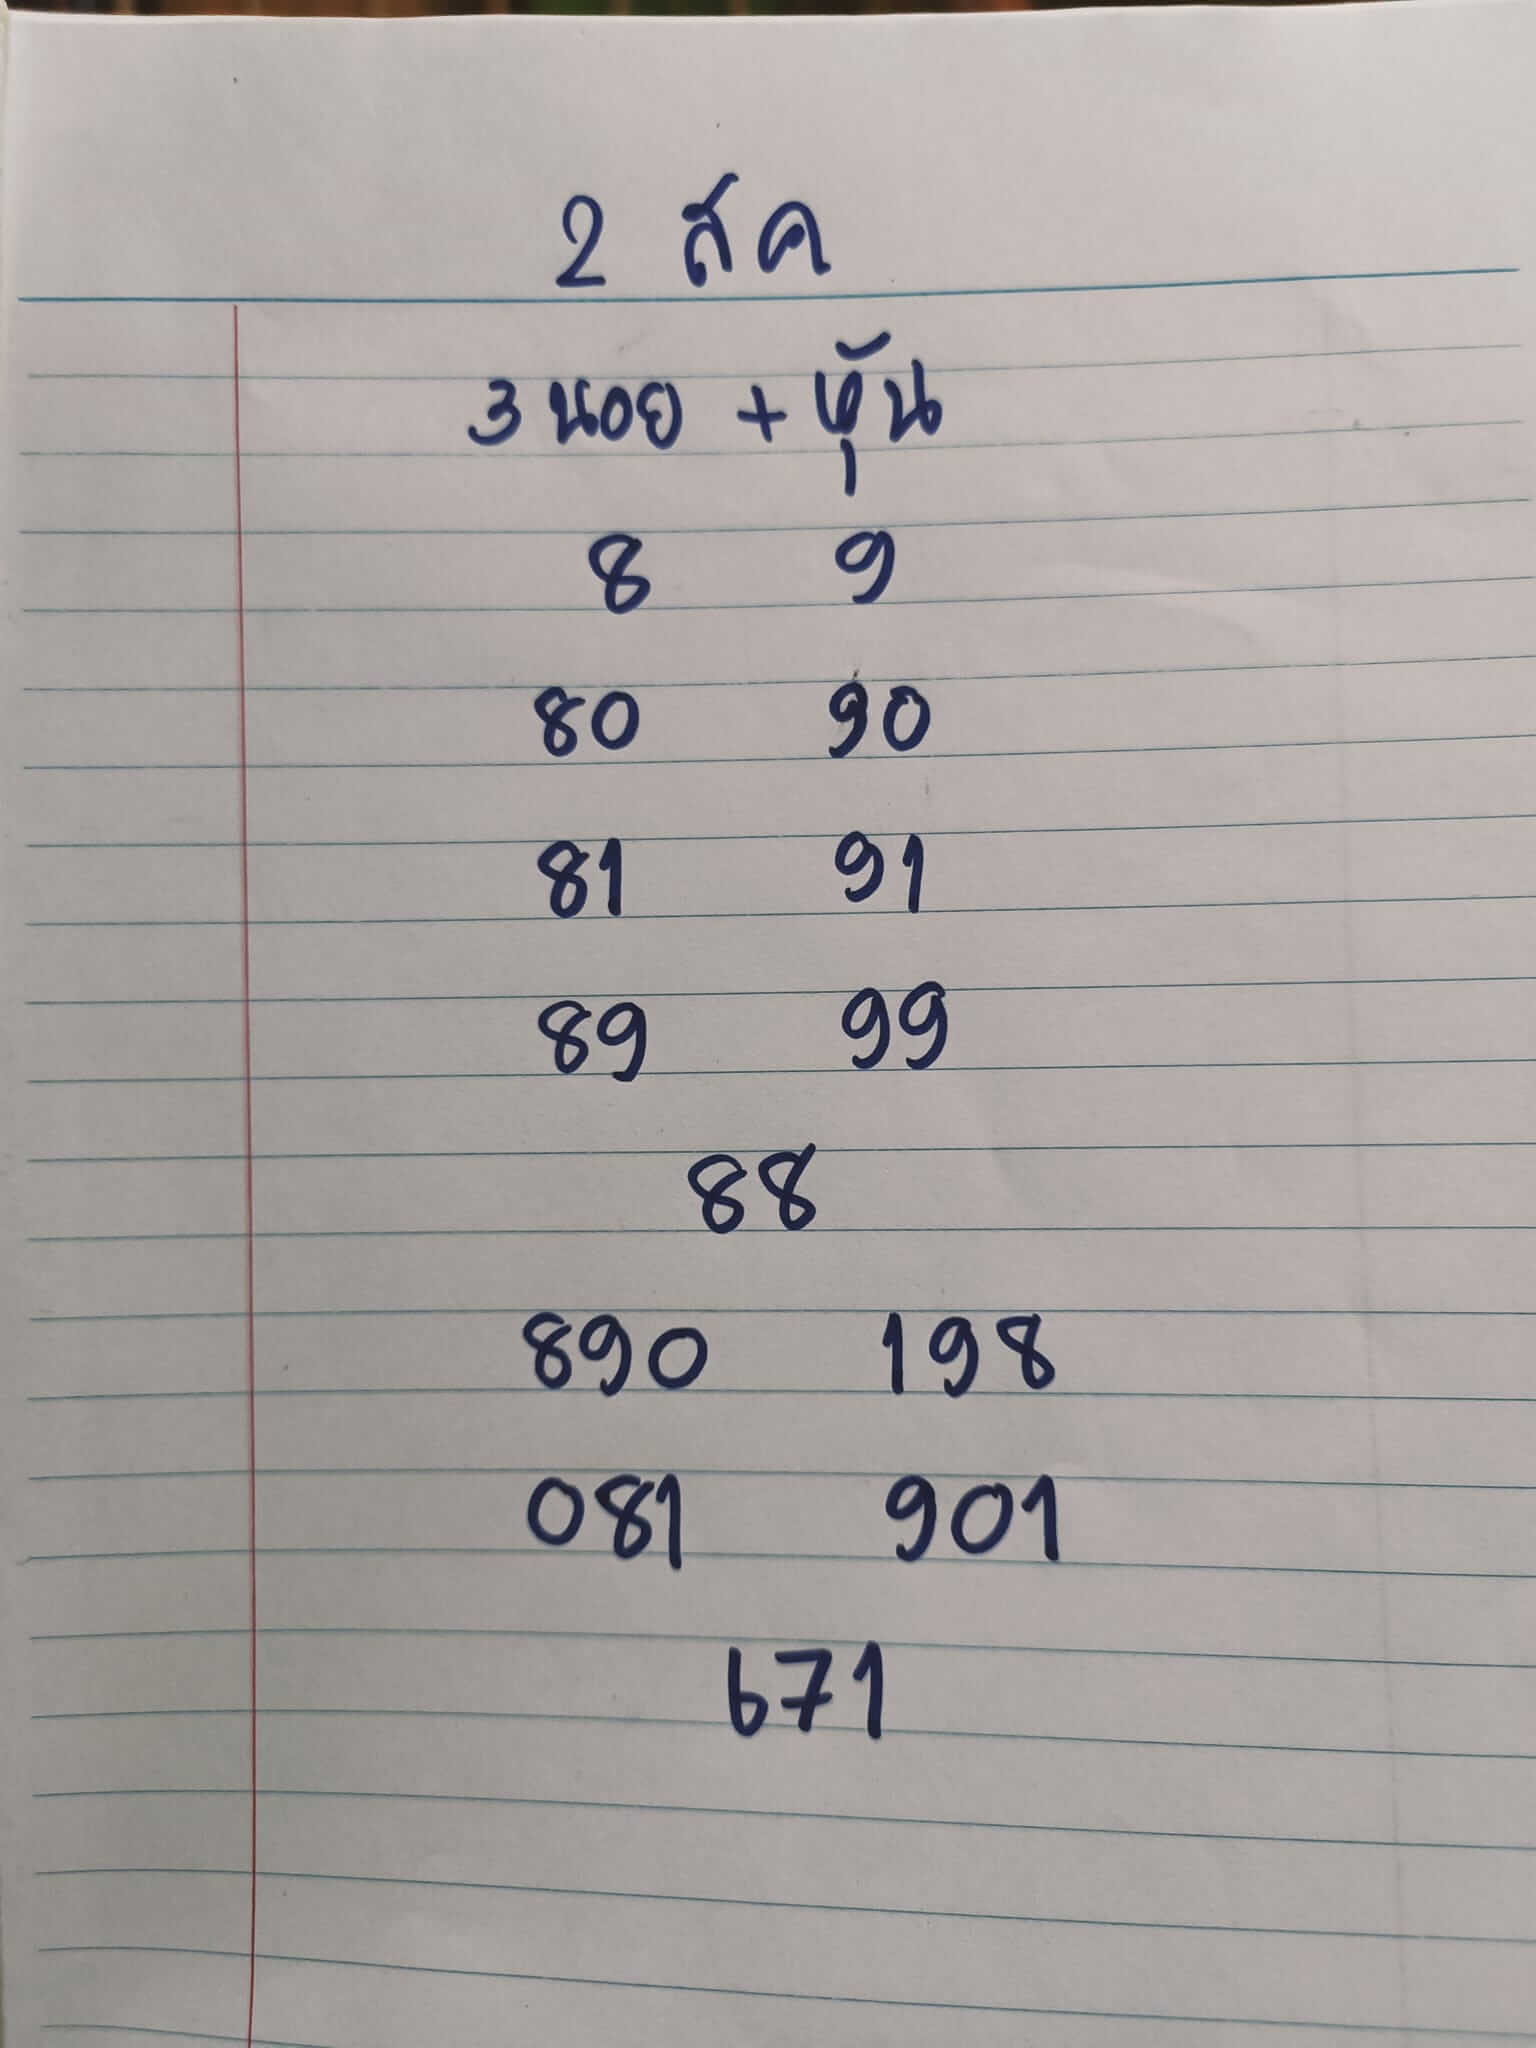 2 สค
3 นอย + หุ้น
8 9
80 90
81 91
89 99
88
890 198
081 901
671